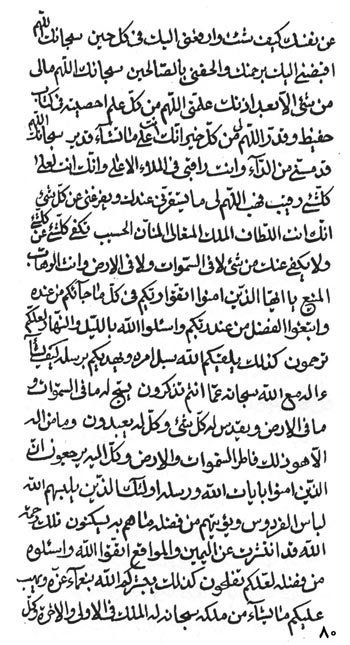 عن نفسك كيف شئت وارفعنى اليك فى كل حين سبحانك اللهم
اقبضنى اليك برحمتك والحقنى بالصالحين سبحانك اللهم مالى
من شئ الا بعد اذنك علمتنى اللهم من كل علم احصيته فى كتاب
حفيظ وقدر اللهم لى من كل خير انك على ما تشاء قدير سبحانك اللهم
قدمستنى من الدآء وانت تراقبنى فى الملاء الاعلى وانك انت لعلى
كلشئ رقيب فهب اللهم لى ما يستقرنى عندك ويفرغنى عن كل شئ
انك انت اللطاف الملك المتعال المنان الحسيب تكفى كلشئ عن كلشئ
ولا يكفى عنك من شئ لا فى السموات ولا فى الارض وانت الوهاب
المنيع يا ايها الذين امنوا اتقوا ربكم فى كل ما جائكم من عنده
وابتغوا الفضل من عند ربكم واسئلوا الله بالليل والنهار لعلكم
ترحمون كذلك يلقيكم الله سبل امره ويهديكم برسله كيف يشآء
ءاله مع الله سبحانه عما انتم تذكرون يسبح له ما فى السموات و
ما فى الارض ويقدس له كل شئ وكل له يعبدون وما من اله
الا هو ذلك فاطر السموات والارض وكل اليه يرجعون ان
الذين امنوا بايات الله ورسله اولئك الذين يلبسهم الله
لباس الفردوس ويؤتيهم من فضله ما هم به يسكنون تلك رحمة
الله قد انتشرت عن اليمين والمواقع اتقوا الله واسئلوه
من فضله لعلكم تفلحون كذلك الله بنعمآء عزه ويهب
عليكم ما يشآء من ملكه سبحانه له الملك فى الاولى والاخرة وكل
٨٠